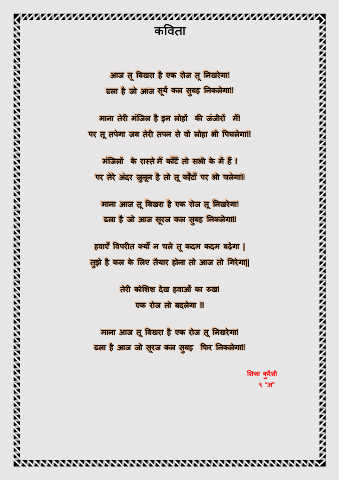 कविता
आज तू बिखरा है एक रोज तू निखरेगा!
ढला है जो आज सूर्य कल सुबह निकलेगा!!
माना तेरी मंजिल है इन लोहों की जंजीरों में!
पर तू तपेगा जब तेरी तपन से वो लोहा भी पिघलेगा!!
मंजिलों के रास्ते में काँटें तो सभी के में हैं ।
पर तेरे अंदर जुनून है तो तू काँटों पर भी चलेगा!!
माना आज तू बिखरा है एक रोज तू निखरेगा!
ढला है जो आज सूरज कल सुबह निकलेगा!!
हवाएँ विपरीत क्यों न चले तू कदम कदम बढ़ेगा |
तुझे है कल के लिए तैयार होना तो आज तो गिरेगा||
तेरी कोशिश देख हवाओं का रुख!
एक रोज तो बदलेगा !!
माना आज तू बिखरा है एक रोज तू निखरेगा!
ढला है आज जो सूरज कल सुबह फिर निकलेगा!!
९ "अ"